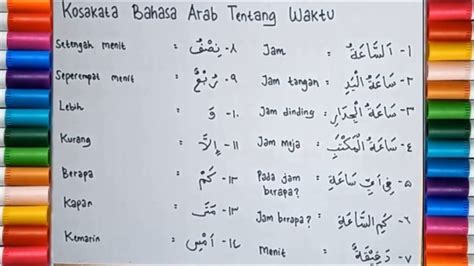 Kosakata Bahasa Arab Tentang Waktu
Jam : ١- اَلسَّاعَةُ
Jam tangan : ٢- سَاعَةُ الْيَدِ
Jam dinding : ٣- سَاعَةُ الْجِدَارِ
Jam meja : ٤- سَاعَةُ الْمَكْتَبِ
Pada jam berapa? : ٥- فِى أَيِّ سَاعَةٍ
Jam berapa? : ٦- كَمِ السَّاعَةِ
Menit : ٧- دَقِيْقَةٌ
Setengah menit : ٨- نِصْفٌ
Seperempat menit : ٩- رُبْعٌ
Lebih : ١٠- وَ
Kurang : ١١- إِلاَّ
Berapa : ١٢- كَمْ
Kapan : ١٣- مَتَى
Kemarin : ١٤- اَمْسِ